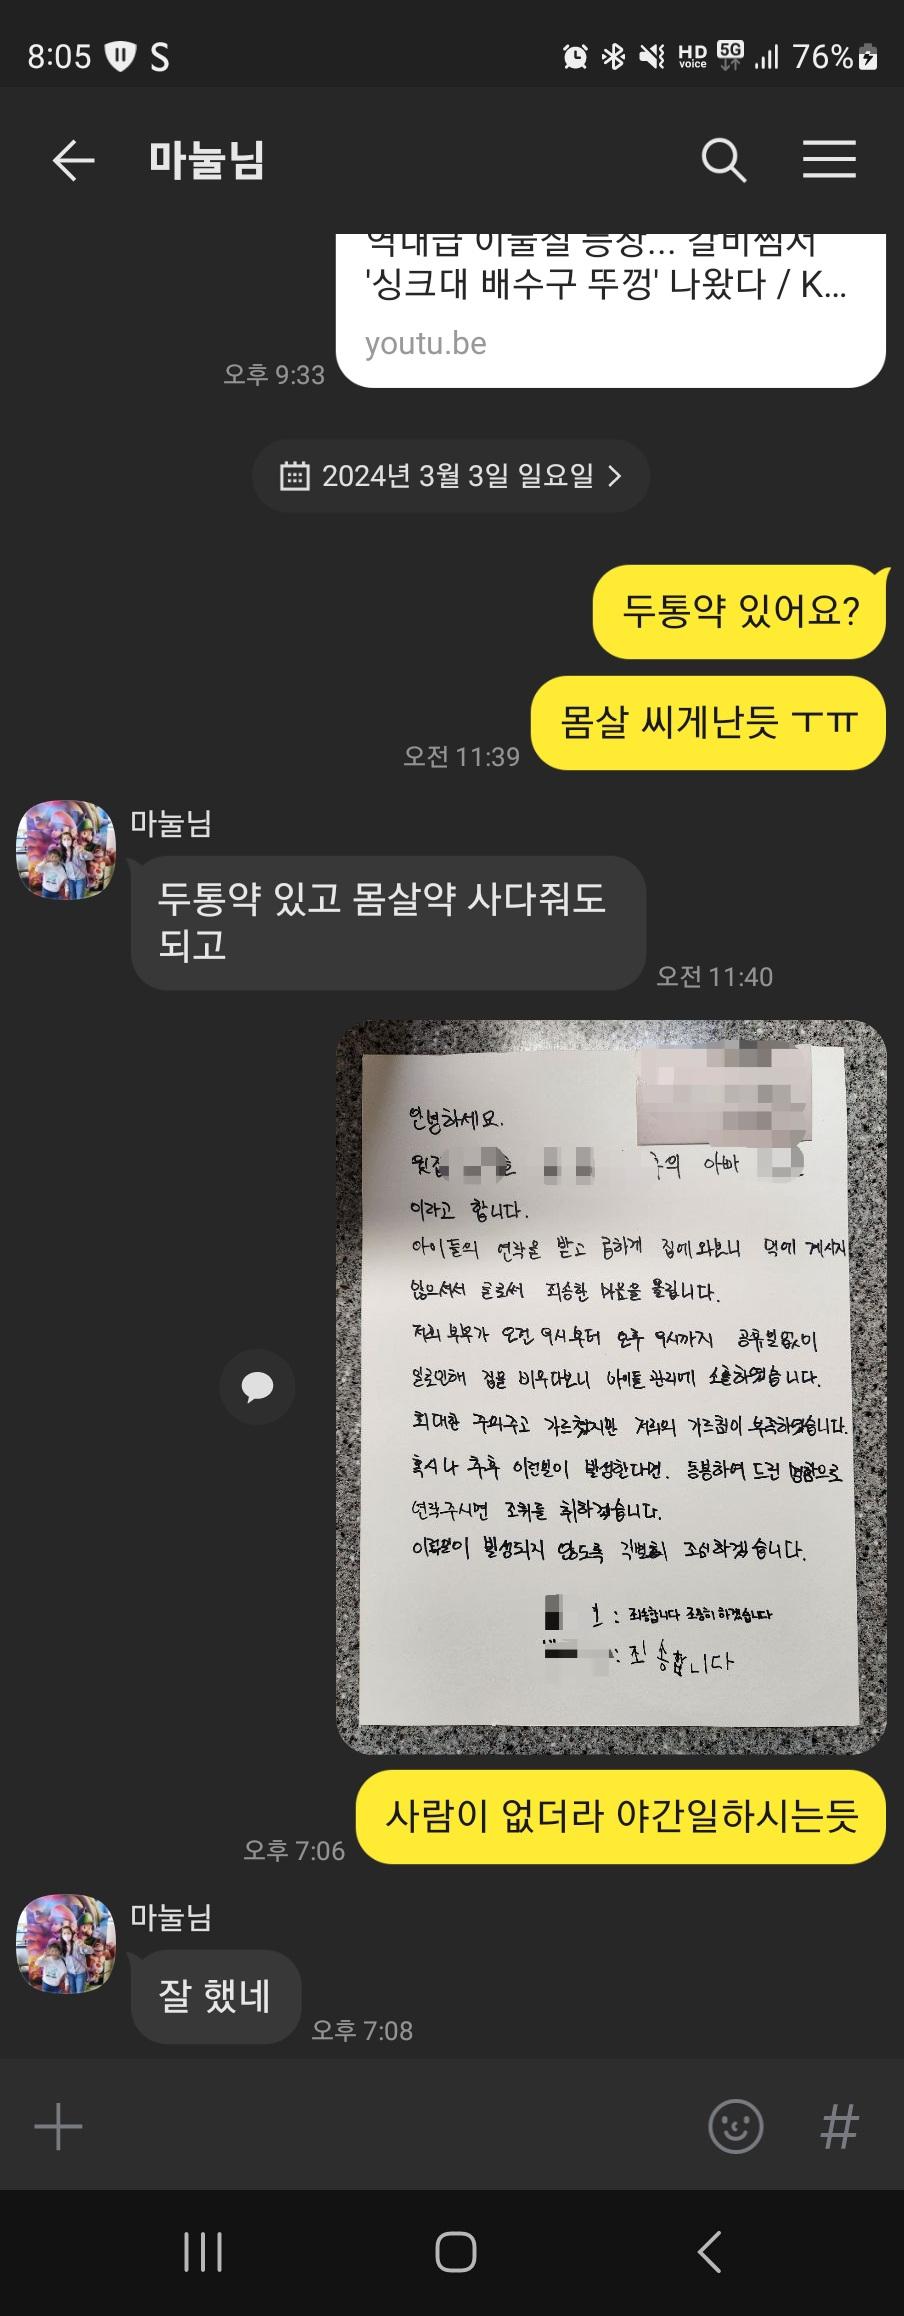 8:05
S
HD voice
5G
76%
마눌님
역대급 이물질 등장... 갈비찜서
'싱크대 배수구 뚜껑' 나왔다 / K...
youtu.be
오후 9:33
2024년 3월 3일 일요일
두통약 있어요?
몸살 씨게난듯 ㅜㅠ
오전 11:39
마눌님
두통약 있고 몸살약 사다줘도
되고
오전 11:40
안녕하세요.
윗집 의 아빠
이라고 합니다.
아이들의 연락을 받고 급하게 집에 와보니 댁에 계시지
않으셔서 글로써 죄송한 마음을 올립니다.
저희 부부가 오전 9시부터 오후 9시까지 공휴일없이
일로인해 집을 비우다보니 아이들 관리에 소홀하였습니다.
최대한 주의주고 가르쳤지만 저희의 가르침이 부족하였습니다.
혹시나 추후 이런일이 발생한다면. 동봉하여 드린 명함으로
연락주시면 조취를 취하겠습니다.
이런일이 발생되지 않도록 각별히 조심하겠습니다.
: 죄송합니다 조용히 하겠습니다
: 죄송합니다
사람이 없더라 야간일하시는듯
오후 7:06
마눌님
잘 했네
오후 7:08
#